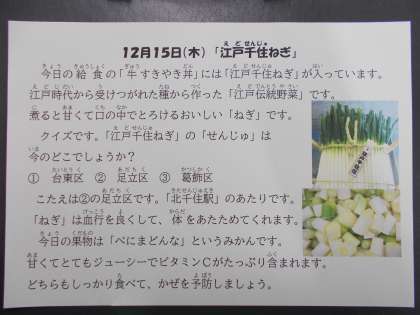 12月15日(木)「江戸千住ねぎ」
今日の給食の「牛すきやき丼」には「江戸千住ねぎ」が入っています。
江戸時代から受けつがれた種から作った「江戸伝統野菜」です。
煮ると甘くて口の中でとろけるおいしい「ねぎ」です。
クイズです。「江戸千住ねぎ」の「せんじゅ」は
今のどこでしょうか?
① 台東区 ② 足立区 ③ 葛飾区
こたえは②の足立区です。「北千住駅」のあたりです。
「ねぎ」は血行を良くして、体をあたためてくれます。
今日の果物は「べにまどんな」というみかんです。
甘くてとてもジューシーでビタミンCがたっぷり含まれます。
どちらもしっかり食べて、かぜを予防しましょう。